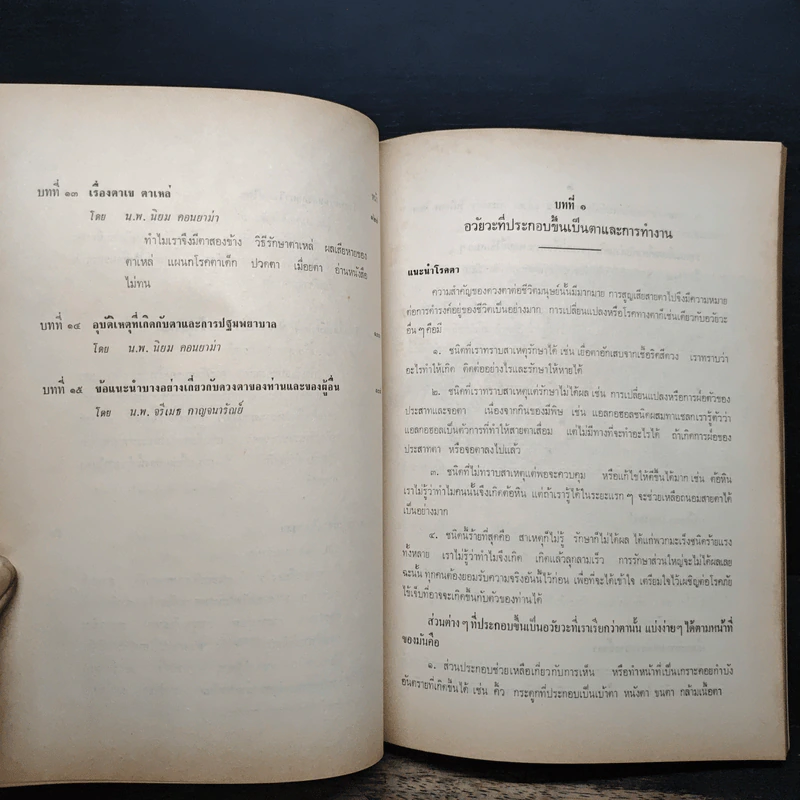 บทที่ ๑๓ เรื่องตาเข ตาเหล่
โดย น.พ. นิยม คอนยาม่า
ทำไมเราจึงมีตาสองข้าง วิธีรักษาตาเหล่ ผลเสียหายของ
ตาเหล่ แผนกโรคตาเด็ก ปวดตา เมื่อยตา อ่านหนังสือ
ไม่ทน
บทที่ ๑๔ อุบัติเหตุที่เกิดกับตาและการปฐมพยาบาล
โดย น.พ. นิยม คอนยาม่า
บทที่ ๑๕ ข้อแนะนำบางอย่างเกี่ยวกับดวงตาของท่านและของผู้อื่น
โดย น.พ. จรีเมธ กาญจนารัณย์
บทที่ ๑
อวัยวะที่ประกอบขึ้นเป็นตาและการทำงาน
แนะนำโรคตา
ความสำคัญของดวงตาต่อชีวิตมนุษย์นั้นมีมากมาย การสูญเสียสายตาไปจึงมีความหมาย
ต่อการดำรงค์อยู่ของชีวิตเป็นอย่างมาก การเปลี่ยนแปลงหรือโรคทางตาก็เช่นเดียวกับอวัยวะ
อื่น ๆ คือมี
๑. ชนิดที่เราทราบสาเหตุรักษาได้ เช่น เยื่อตาอักเสบจากเชื้อริคสีดวง เราทราบว่า
อะไรทำให้เกิด ติดต่ออย่างไรและรักษาให้หายได้
๒. ชนิดที่เราทราบสาเหตุแต่รักษาไม่ได้ผล เช่น การเปลี่ยนแปลงหรือการฝ่อตัวของ
ประสาทและจอตา เนื่องจากกินของมีพิษ เช่น แอลกอฮอล์ชนิดผสมทาแชลกเรารู้ตัวว่า
แอลกอฮอล์เป็นตัวการที่ทำให้สายตาเสื่อม แต่ไม่มีทางที่จะทำอะไรได้ ถ้าเกิดการฝ่อของ
ประสาทตา หรือจอตาลงไปแล้ว
๓. ชนิดที่ไม่ทราบสาเหตุแต่พอจะควบคุม หรือแก้ไขให้ดีขึ้นได้มาก เช่น ต้อหิน
เราไม่รู้ว่าทำไมคนนั้นจึงเกิดต้อหิน แต่ถ้าเรารู้ได้ในระยะแรก ๆ จะช่วยเหลือถนอมสายตาได้
เป็นอย่างมาก
๔. ชนิดนี้ร้ายที่สุดคือ สาเหตุก็ไม่รู้ รักษาก็ไม่ได้ผล ได้แก่พวกมะเร็งชนิดร้ายแรง
ทั้งหลาย เราไม่รู้ว่าทำไมจึงเกิด เกิดแล้วลุกลามเร็ว การรักษาส่วนใหญ่จะไม่ได้ผลเลย
ฉะนั้น ทุกคนต้องยอมรับความจริงอันนี้ไว้ก่อน เพื่อที่จะได้เข้าใจ เตรียมใจไว้เผชิญต่อโรคภัย
ไข้เจ็บที่อาจจะเกิดขึ้นกับตัวของท่านได้
ส่วนต่าง ๆ ที่ประกอบขึ้นเป็นอวัยวะที่เราเรียกว่าตานั้น แบ่งง่าย ๆ ได้ตามหน้าที่
ของมันคือ
๑. ส่วนประกอบช่วยเหลือเกี่ยวกับการเห็น หรือทำหน้าที่เป็นเกราะคอยกำบัง
อันตรายที่เกิดขึ้นได้ เช่น คิ้ว กระดูกที่ประกอบเป็นเบ้าตา หนังตา ขนตา กล้ามเนื้อตา